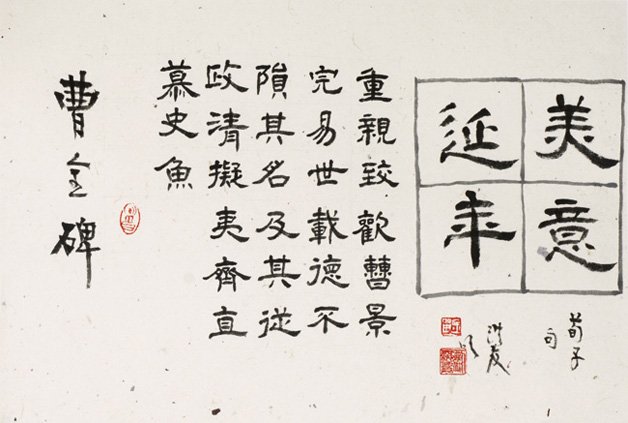 美意
延年
荀子
句
重親致歡曹景
完易世載德不
隕其名及其從
政清擬夷齊直
慕史魚
曹全碑